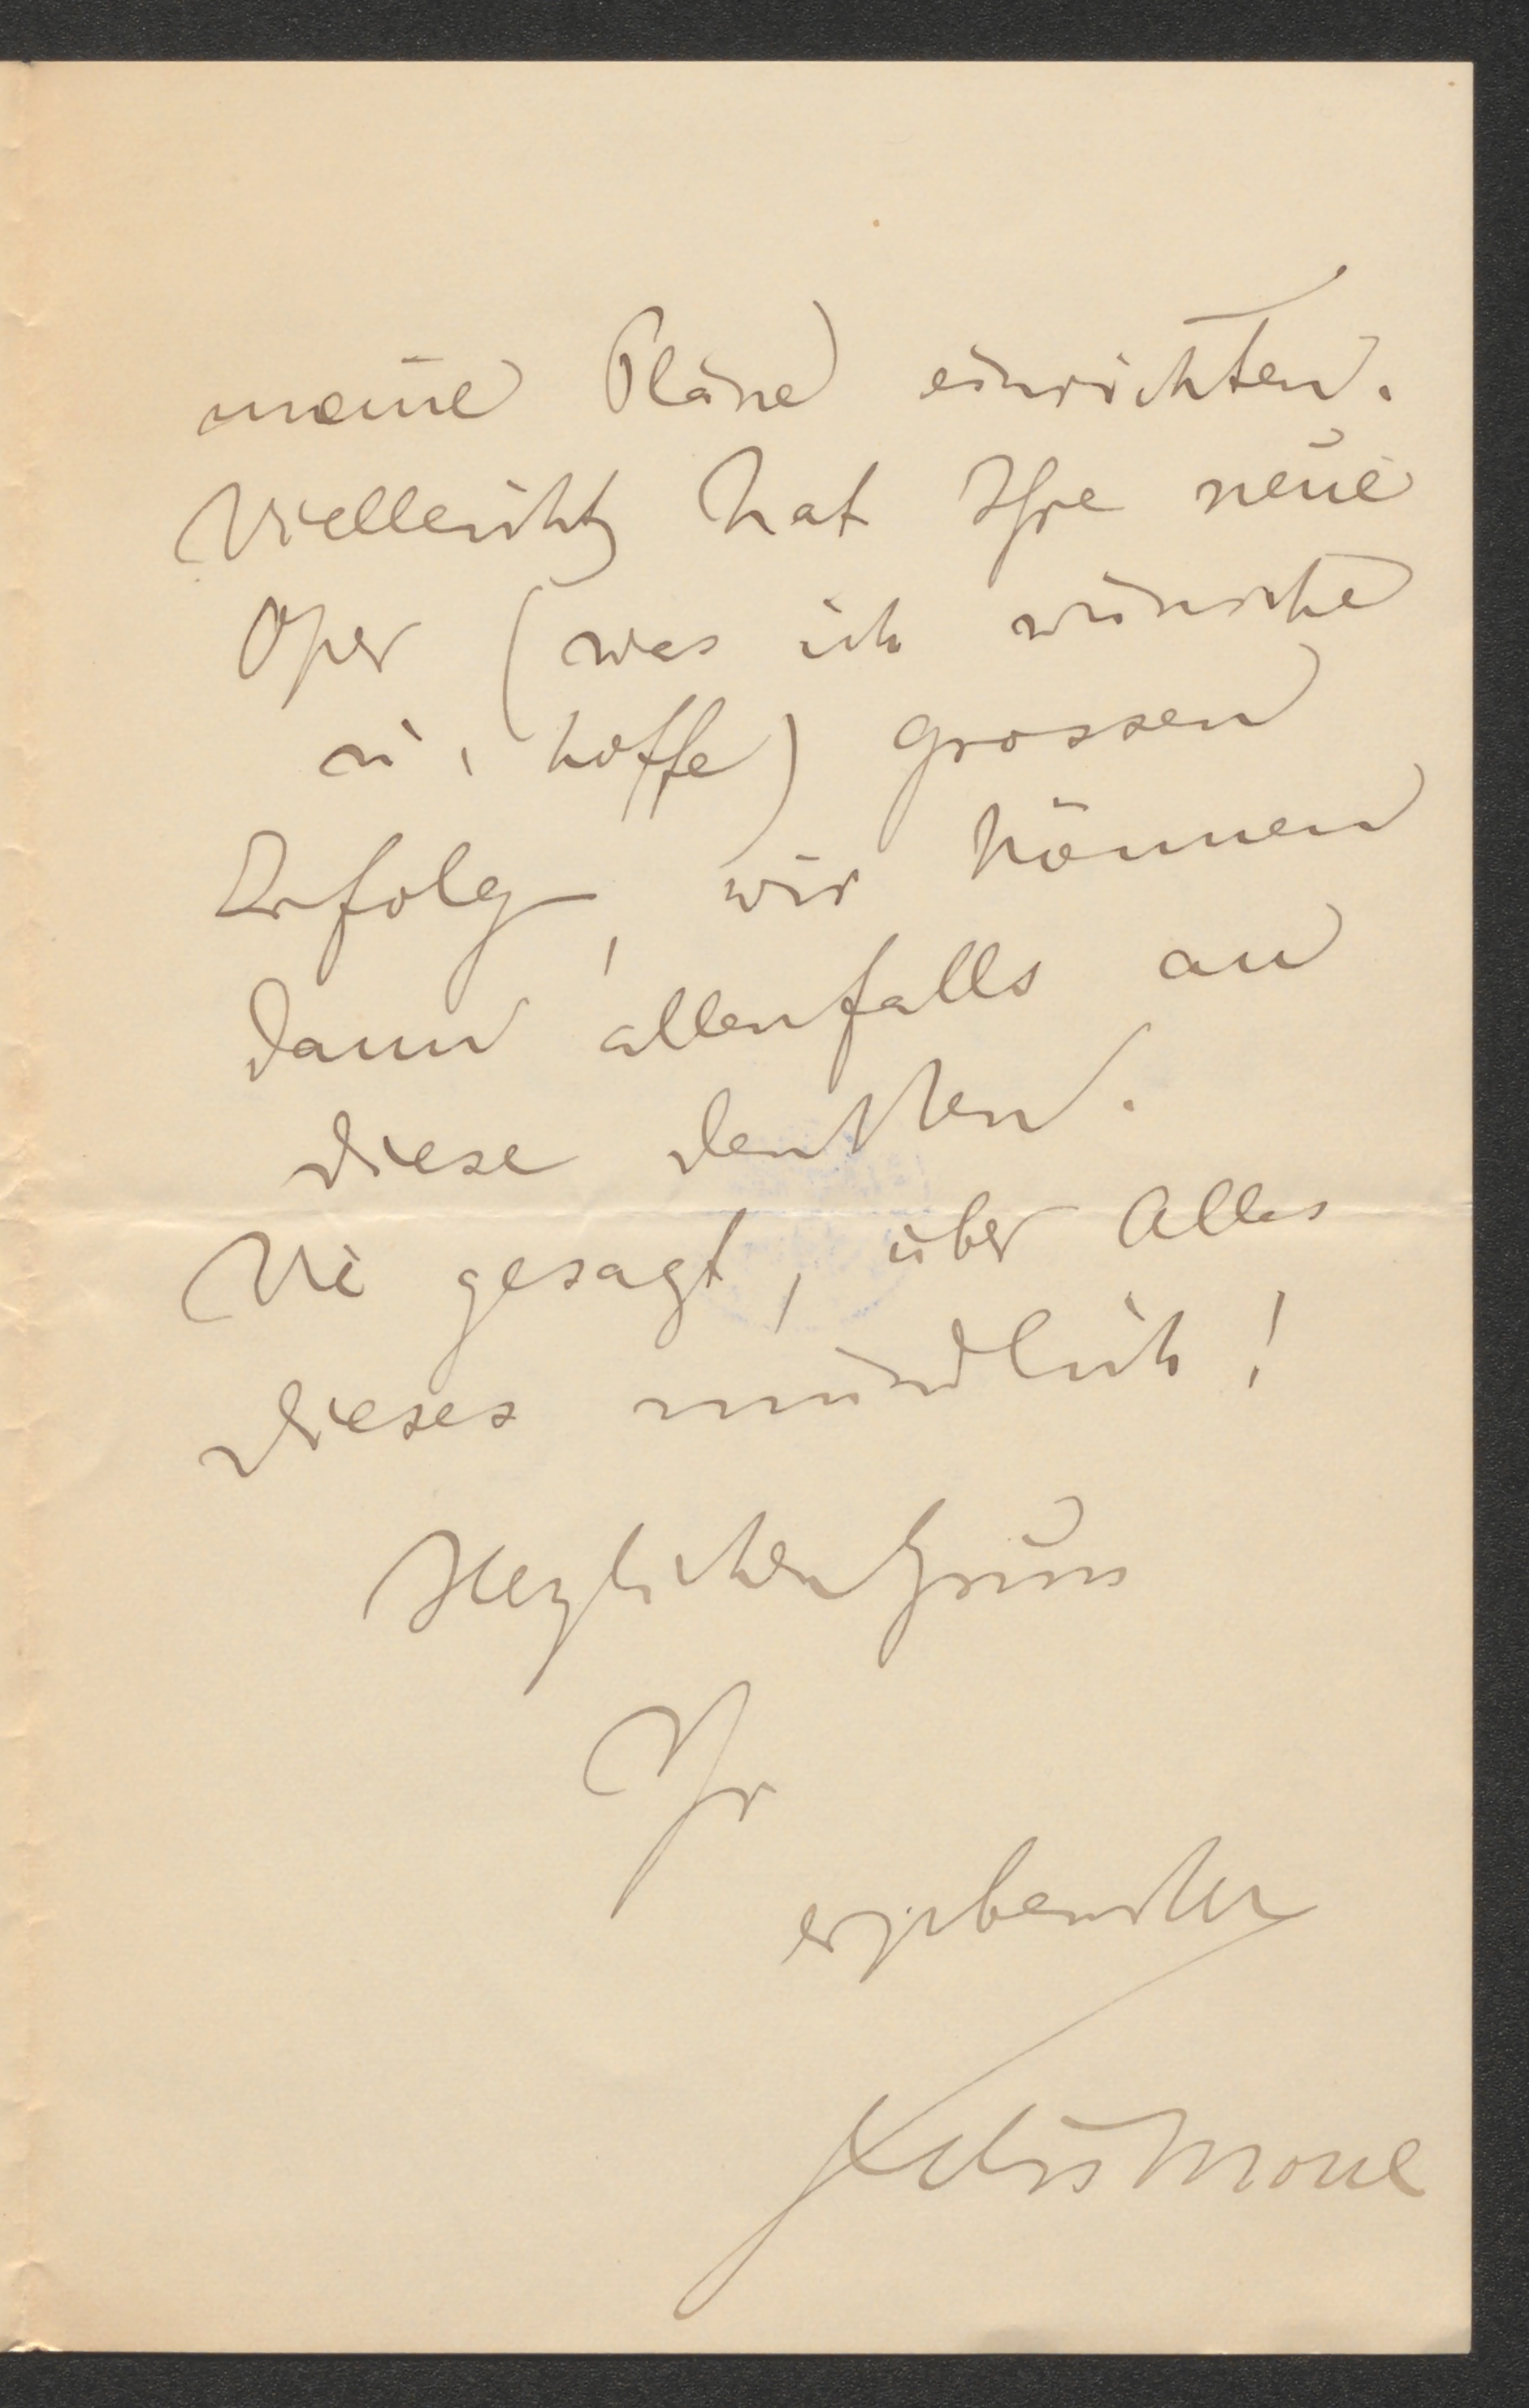 meine Pläne einrichten.
Vielleicht hat Ihre neue
Oper (was ich wünsche
u. hoffe) grossen
Erfolg, wir können
dann allenfalls an
diese denken.
Wie gesagt, über Alles
dieses mündlich!
Herzlichen Gruss
Ihr
ergebenster
Felix Mottl